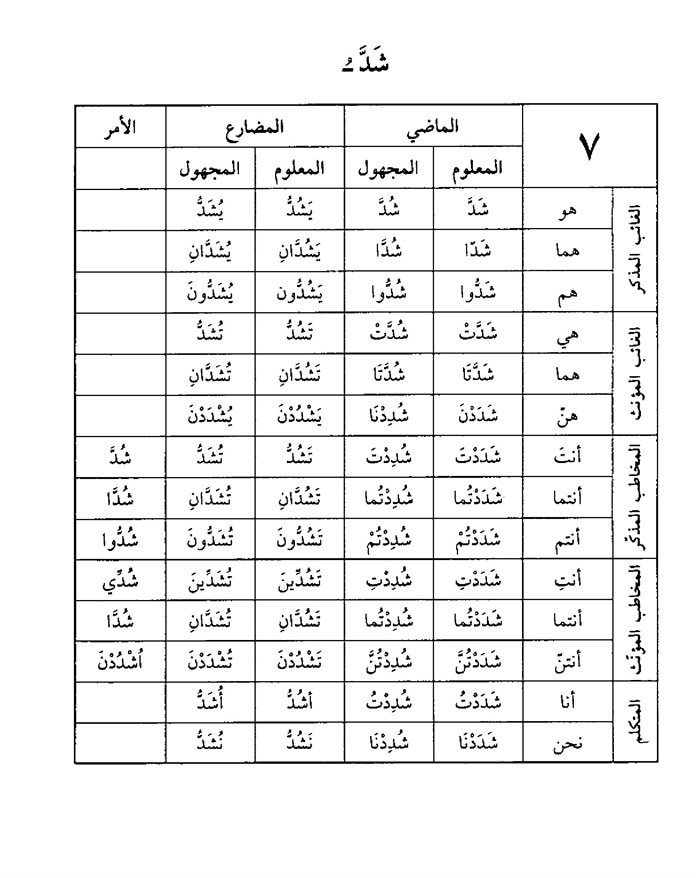 شَدَّ ـُ
٧ الماضي المضارع الأمر
المعلوم المجهول المعلوم المجهول
الغائب المذكر
هو شَدَّ شُدَّ يَشُدُّ يُشَدُّ
هما شَدّا شُدَّا يَشُدَّانِ يُشَدَّانِ
هم شَدُّوا شُدُّوا يَشُدُّون يُشَدُّونَ
الغائب المؤنث
هي شَدَّتْ شُدَّتْ تَشُدُّ تُشَدُّ
هما شَدَّتَا شُدَّتَا تَشُدَّانِ تُشَدَّانِ
هنّ شَدَدْنَ شُدِدْنَا يَشْدُدْنَ يُشْدَدْنَ
المخاطب المذكّر
أنتَ شَدَدْتَ شُدِدْتَ تَشُدُّ تُشَدُّ شُدَّ
أنتما شَدَدْتُما شُدِدْتُما تَشُدَّانِ تُشَدَّانِ شُدَّا
أنتم شَدَدْتُمْ شُدِدْتُمْ تَشُدُّونَ تُشَدُّونَ شُدُّوا
المخاطب المؤنّث
أنتِ شَدَدْتِ شُدِدْتِ تَشُدِّينَ تُشَدِّينَ شُدِّي
أنتما شَدَدْتُما شُدِدْتُما تَشُدَّانِ تُشَدَّانِ شُدَّا
أنتنّ شَدَدْتُنَّ شُدِدْتُنَّ تَشْدُدْنَ تُشْدَدْنَ اُشْدُدْنَ
المتكلم
أنا شَدَدْتُ شُدِدْتُ أشُدُّ أُشَدُّ
نحن شَدَدْنَا شُدِدْنَا نَشُدُّ نُشَدُّ